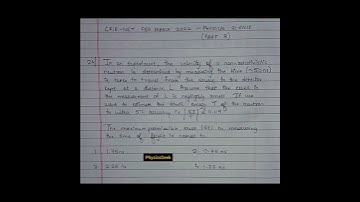 CSIR-NET FEB PAPER 2022 - PHYSICAL SCIENCE
(PART B)
In an experiment, the velocity of a non-relativistic
neutron is determined by measuring the time (~50ns)
it takes to travel from the source to the detector
kept at a distance L. Assume that the error in
the measurement of L is negligibly small. If we
want to estimate the kinetic energy T of the neutron
to within 5% accuracy
The maximum permissible error in measuring
the time of flight is nearest to
1. 1.75 ns 2. 0.75 ns
3. 2.25 ns 4. 1.25 ns
PhysicsGeek